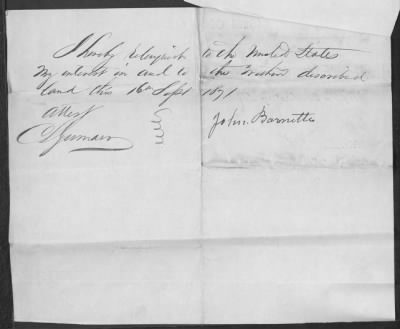 I hereby relinquish to the United States
my interest in and to the within described
land this 16th Sept 1871
Attest
John Barnette